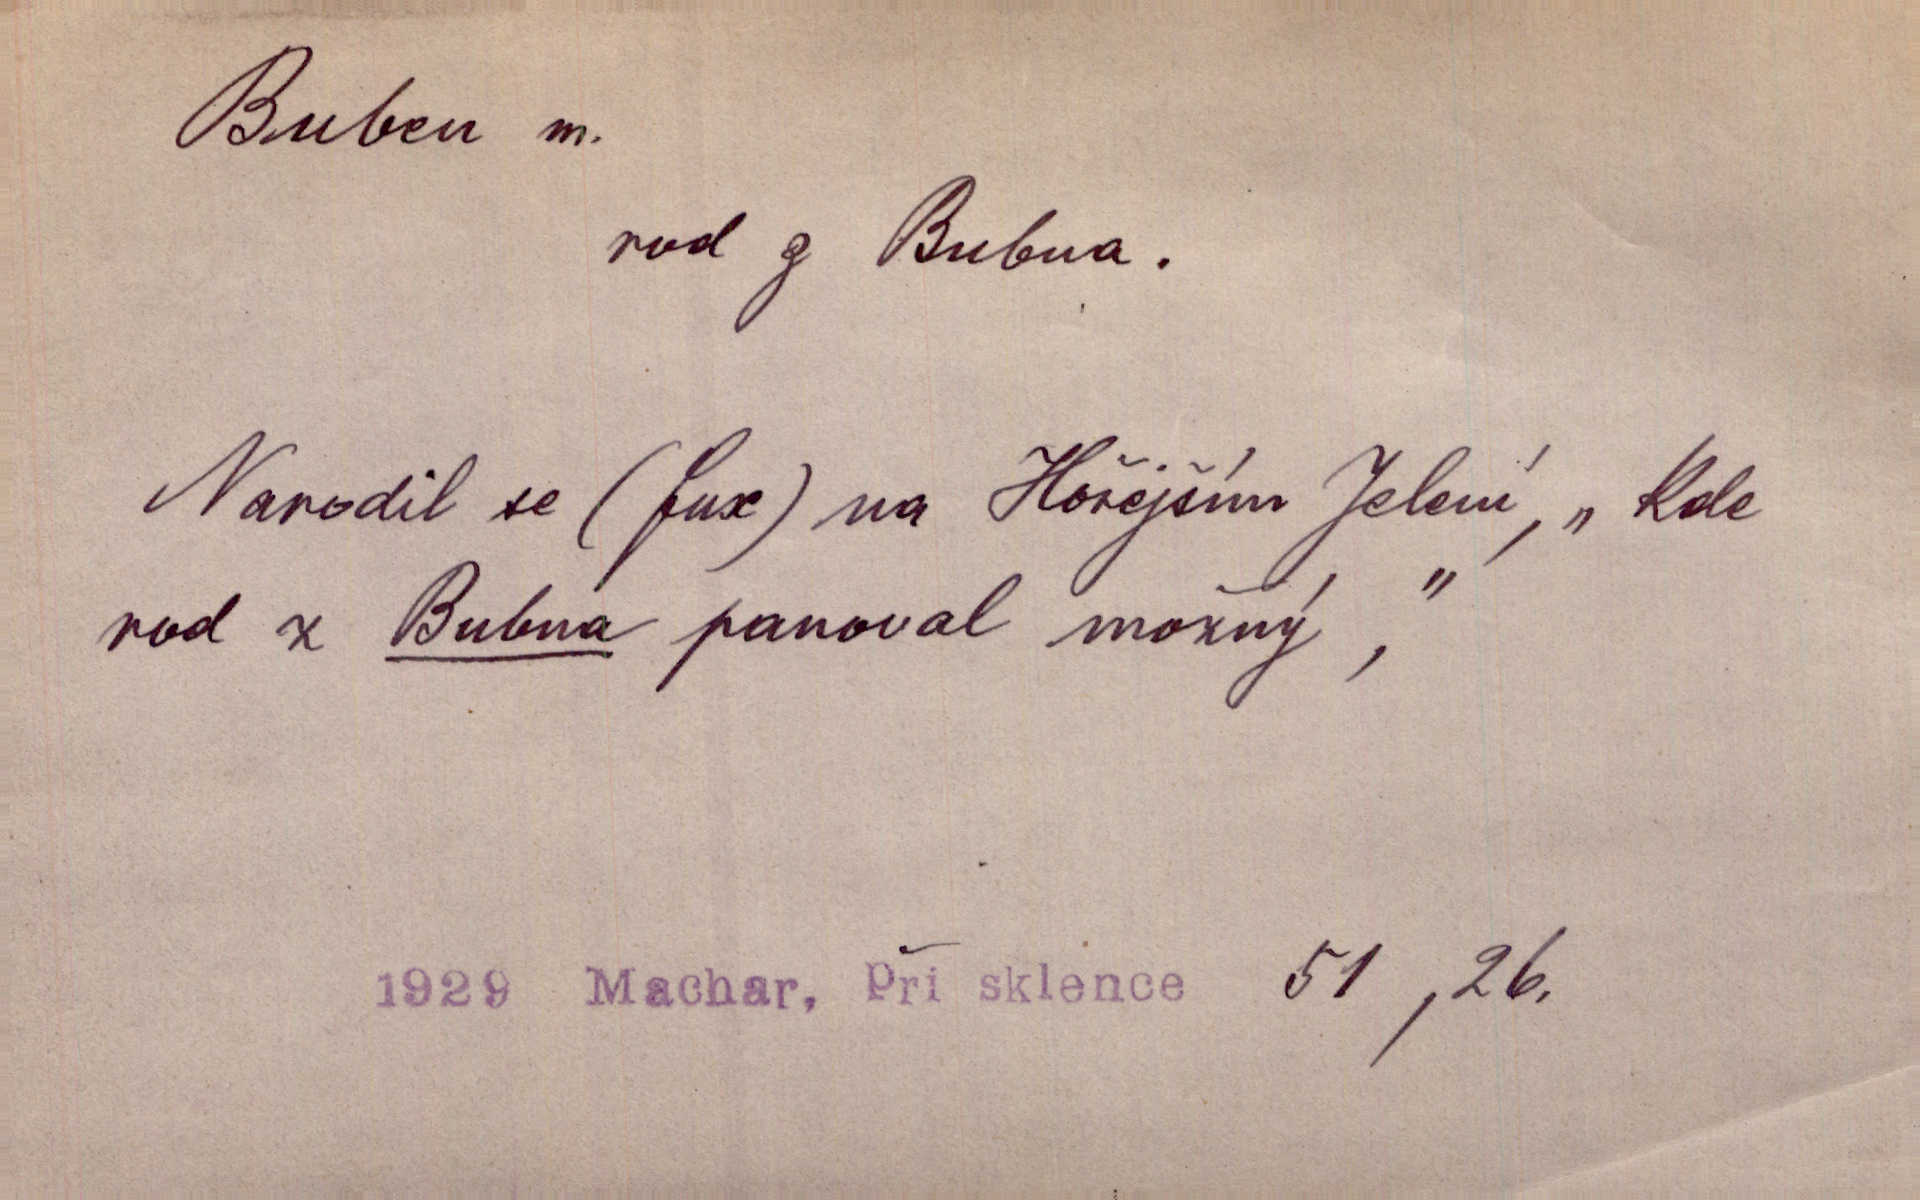 Buben m.
rod z Bubna.
Narodil se (fux) na Hořejším Jelení, „Kde
rod z Bubna panoval možný,"
1929 Machar, Při sklence 51, 26.